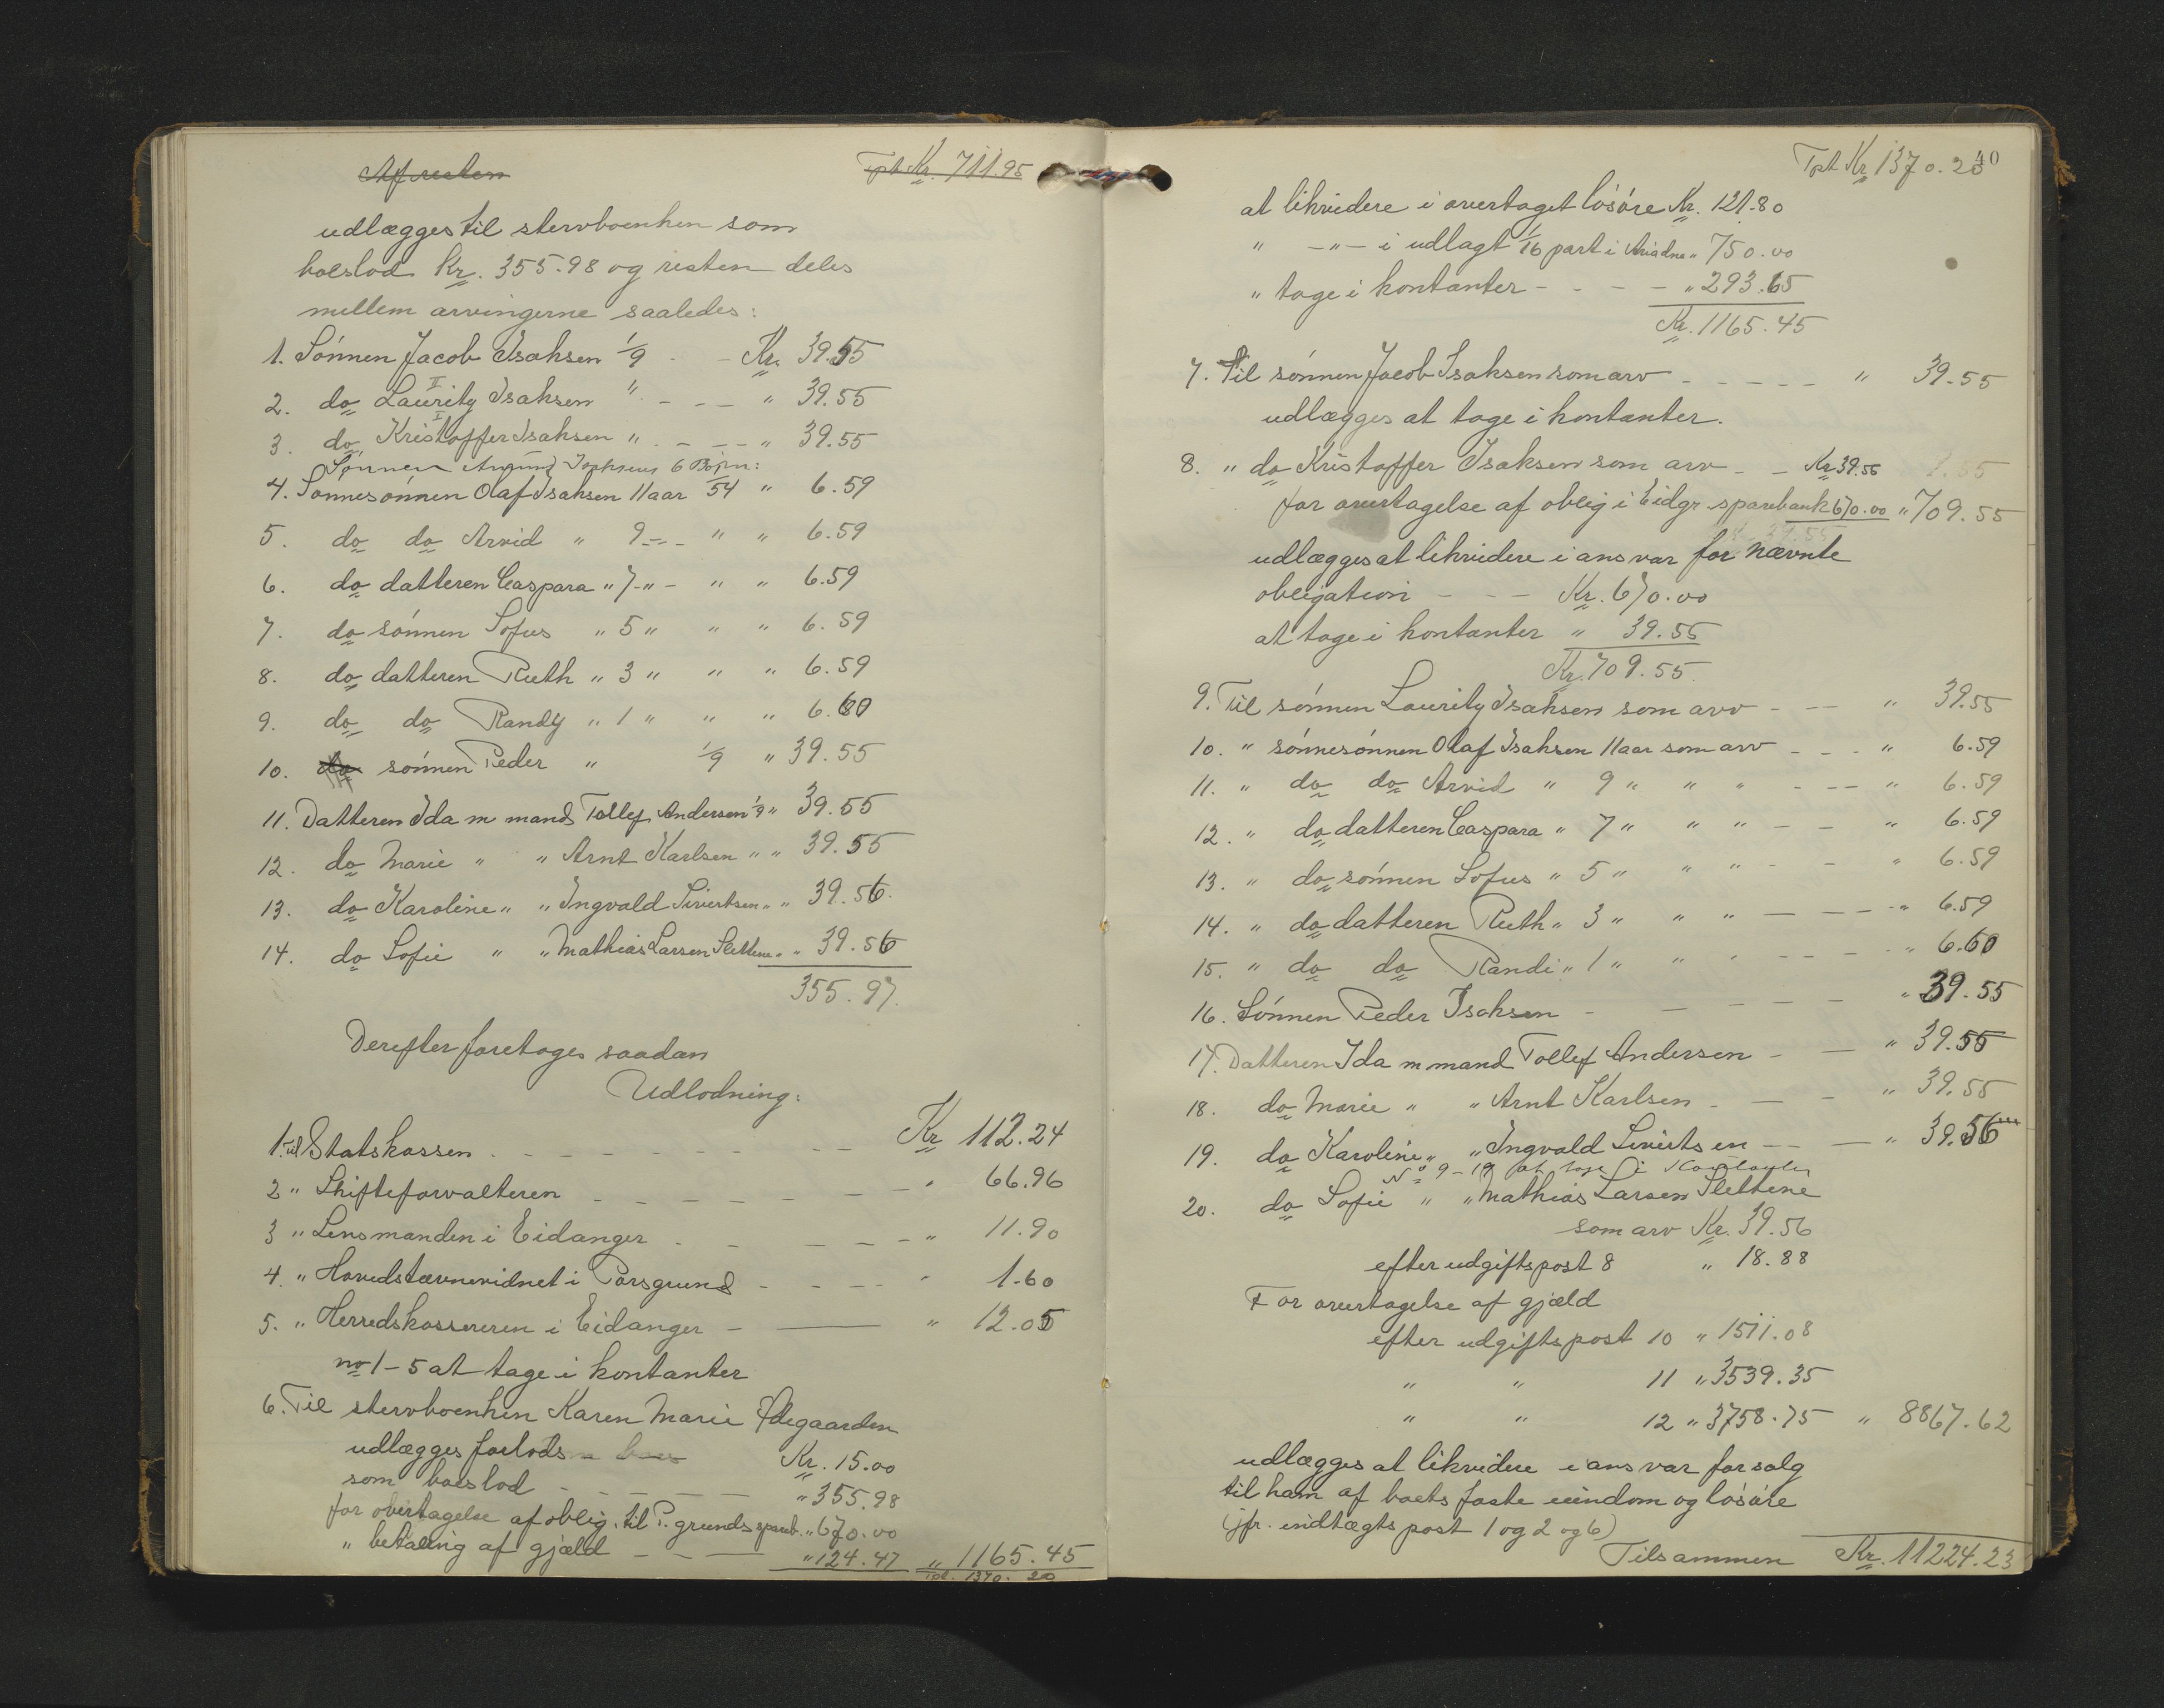 Af resten Tpt Kr. 711.95
udlægges til stervboenken som
boeslod Kr. 355.98 og resten deles
mellem arvingerne saaledes:
1. Sønnen Jacob Isaksen 1/9 - - Kr. 39.55
2. do II Lauritz Isaksen " - - - " 39.55
3. do I Kristoffer Isaksen " - - - - " 39.55
Sønnen Isaksens 6 Børn:
4. Sønnesønnen Olaf Isaksen 11 aar 1/54 " 6.59
5. do do Arvid " 9 - " - " " 6.59
6. do datteren Caspara " 7 - " - " " 6.59
7. do sønnen Sofus " 5 " " " 6.59
8. do datteren Ruth " 3 " " " 6.59
9. do do Randy " 1 " " " 6.60
10. do sønnen Peder " 1/9 " 39.55
11. Datteren Ida m mand Tollef Andersen 1/9 " 39.55
12. do Marie " " Arnt Karlsen " " 39.55
13. do Karoline " " Ingvald Sivertsen " " 39.56
14. do Sofie " " Mathias Larsen Slettene " " 39.56
355.97.
Derefter foretages saadan
Udlodning:
1. til Statskassen - - - - - - - Kr 112.24
2 " Skifteforvalteren - - - - - - - " 66.96
3 " Lensmanden i Eidanger - - - - - - " 11.90
4. " Hovedstævnevidnet i Porsgrund - - - - - " 1.60
5. " Herredskassereren i Eidanger - — " 12.05
no 1-5 at tage i kontanter
6. Til stervboenken Karen Marie Ødegaarden
udlægges forlods Kr. 15.00
som boeslod - - - - " 355.98
for overtagelse af oblig. til P.grunds spareb. " 670.00
" betaling af gjæld - - — " 124.47 " 1165.45
Tpt. 1370.20
40
Tpt Kr 1370.20
at likvidere i overtaget løsøre Kr. 121.80
" - " - i udlagt 1/16 part i Ariadne " 750.00
" tage i kontanter - - - - " 293.65
Kr. 1165.45
7. Til sønnen Jacob Isaksen som arv - - - - - " 39.55
udlægges at tage i kontanter.
8. " do Kristoffer Isaksen som arv - - Kr 39.55
for overtagelse af oblig i Eidgr sparebank 670.00 " 709.55
udlægges at likvidere i ansvar for nævnte
obligation - - - Kr. 670.00
at tage i kontanter " 39.55
Kr. 709.55.
9. Til sønnen Lauritz Isaksen som arv - - - " 39.55
10. " sønnesønnen Olaf Isaksen 11 aar som arv - - - " 6.59
11. " do do Arvid " 9 " " " - - - " 6.59
12. " do datteren Caspara " 7 " " " - - " 6.59
13. " do sønnen Sofus " 5 " " " - - " 6.59
14. " do datteren Ruth " 3 " " " - - - - " 6.59
15. " do do Randi " 1 " " " - - - - " 6.60
16. Sønnen Peder Isaksen - - - - - " 39.55
17. Datteren Ida m mand Tollef Andersen - — " 39.55
18. do Marie " " Arnt Karlsen - — - " 39.55
19. do Karoline " " Ingvald Sivertsen - - — " 39.56
No 9-19 at tage i Kontanter
20. do Sofie " " Mathias Larsen Slettene
som arv Kr. 39.56
efter udgiftspost 8 " 18.88
For overtagelse af gjæld
efter udgiftspost 10 " 1511.08
" " 11 " 3539.35
" " 12 " 3758.75 " 8867.62
udlægges at likvidere i ansvar for salg
til ham af boets faste eiendom og løsøre
(jfr. indtægts post 1 og 2 og 6)
Tilsammen Kr. 11224.23